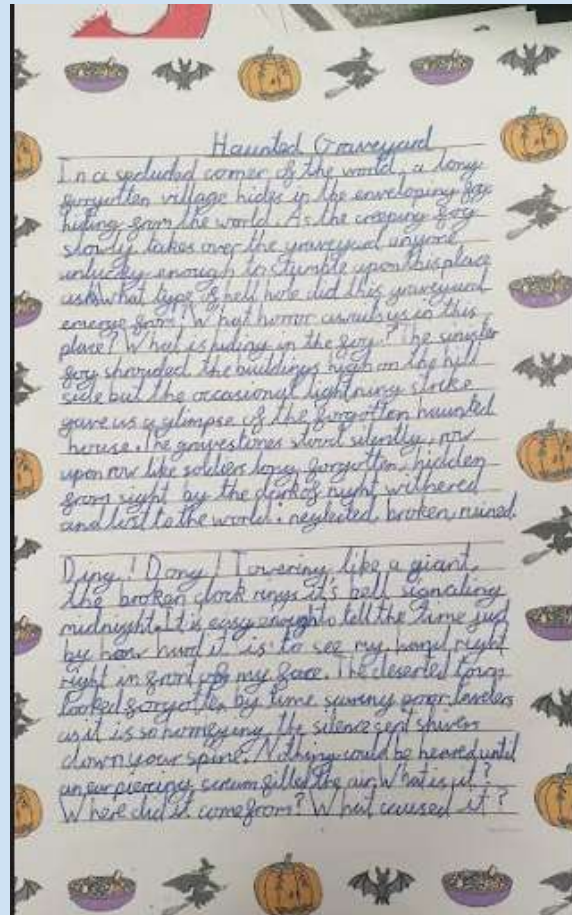 Haunted Graveyard
In a secluded corner of the world, a long
gorgotten village hides in the enveloping fog
hiding from the world. As the creeping fog
slowly takes over the graveyard anyone
unlucky enough to stumble upon this place
ask what type of hell hole did this graveyard
emerge from? What horror awaits us in this
place? What is hiding in the fog? The sinister
fog shrouded the buildings high on the hill
side but the occasional lightning strike
gave us a glimpse of the forgotten haunted
house. The gravestones stood silently, row
upon row like soldiers long forgotten, hidden
from sight by the dark of night withered
and lost to the world: neglected, broken, ruined.
Ding! Dong! Towering like a giant,
the broken clock rings it's bell signaling
midnight. It is easy enough to tell the time just
by how hard it is to see my hand right
right in front of my face. The deserted town
looked forgotten by time poor
as it is so the silence sent shivers
down your spine. Nothing could be heared until
an ear piercing scream filled the air. What is it?
Where did it come from? What caused it?